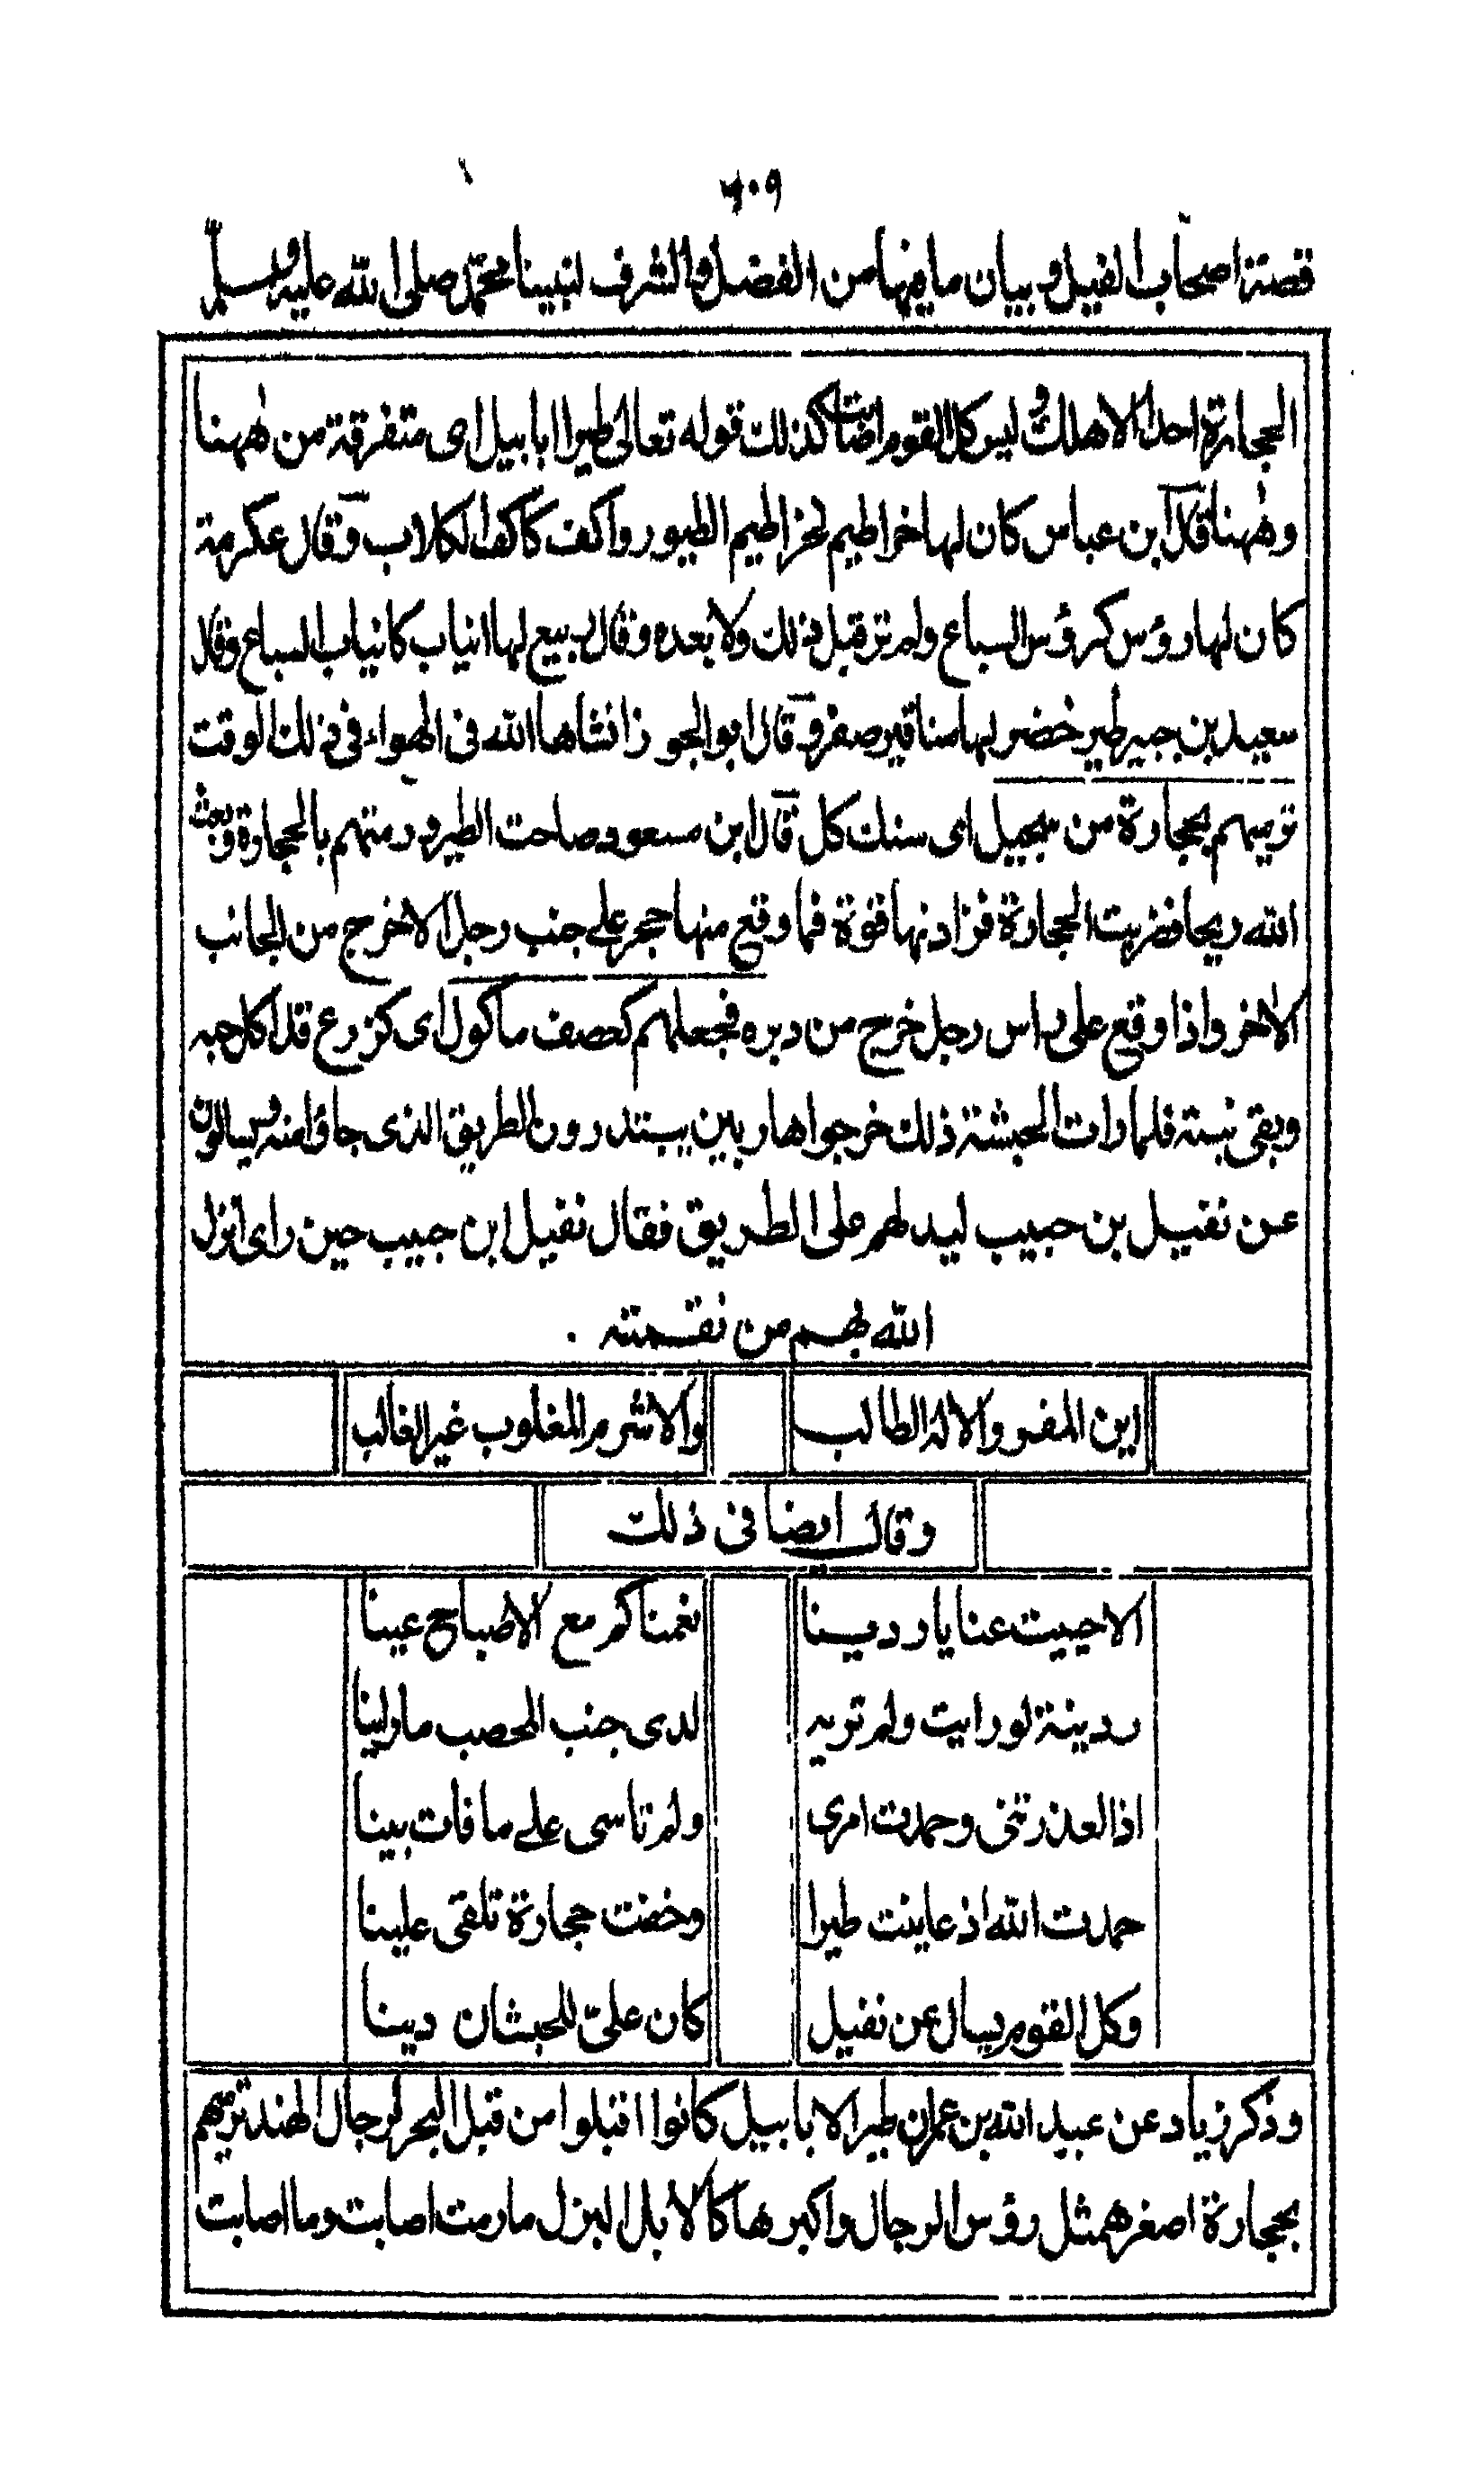 ۴۰۹
قصة اصحاب الفيل وبيان ما فيها من الفضل والشرف لنبينا محمد صلى الله عليه وسلم
الحجارة احدا الا هلك وليس كل القوم اصابت كذلك قوله تعالى طيرا ابابيل اى متفرقة من ههنا
وههنا قال ابن عباس كان لها خراطيم كخراطيم الطيور واكف كاكف الكلاب وقال عكرمة
كان لها رؤس كرؤس السباع ولم تر قبل ذلك ولا بعده وقال ربيع لها انياب كانياب السباع وقال
سعيد بن جبير طير خضر لها مناقير صفر وقال ابو الجوزا انشاها الله فى الهواء فى ذلك الوقت
ترميهم بحجارة من سجيل اى سنك كل قال ابن مسعود صاحت الطير ورمتهم بالحجارة وبعث
الله ريحا فضربت الحجارة فزادتها قوة فما وقع منها حجر على جنب رجل الا خرج من الجانب
الاخر واذا وقع على راس رجل خرج من دبره فجعلهم كعصف ماكول اى كزرع قد اكل حبه
وبقى تبنته فلما رات الحبشة ذلك خرجوا هاربين يبتدرون الطريق الذى جاؤا منه ويسالون
عن نفيل بن حبيب ليدلهم على الطريق فقال نفيل ابن حبيب حين راى انزل
الله بهم من نقمته .
اين المفر والاله الطالب والاشرم المغلوب غير الغالب
وقال ايضا فى ذلك
الا حييت عنا يا ردينا نعمناكم مع الاصباح عينا
ردينة لو رايت ولم تريه لدى جنب المحصب ما راينا
اذا لعذرتنى وحمدت امرى ولم تاسى على ما فات بينا
حمدت الله اذ عاينت طيرا وخفت حجارة تلقى علينا
وكل القوم يسال عن نفيل كان علىّ للحبشان دينا
وذكر زياد عن عبيد الله بن عمران طيرا الابابيل كانوا اقبلوا من قبل البحر كرجال الهند ترميهم
بحجارة اصغرهم مثل رؤس الرجال واكبرها كالابل البزل ما رمت اصابت وما اصابت